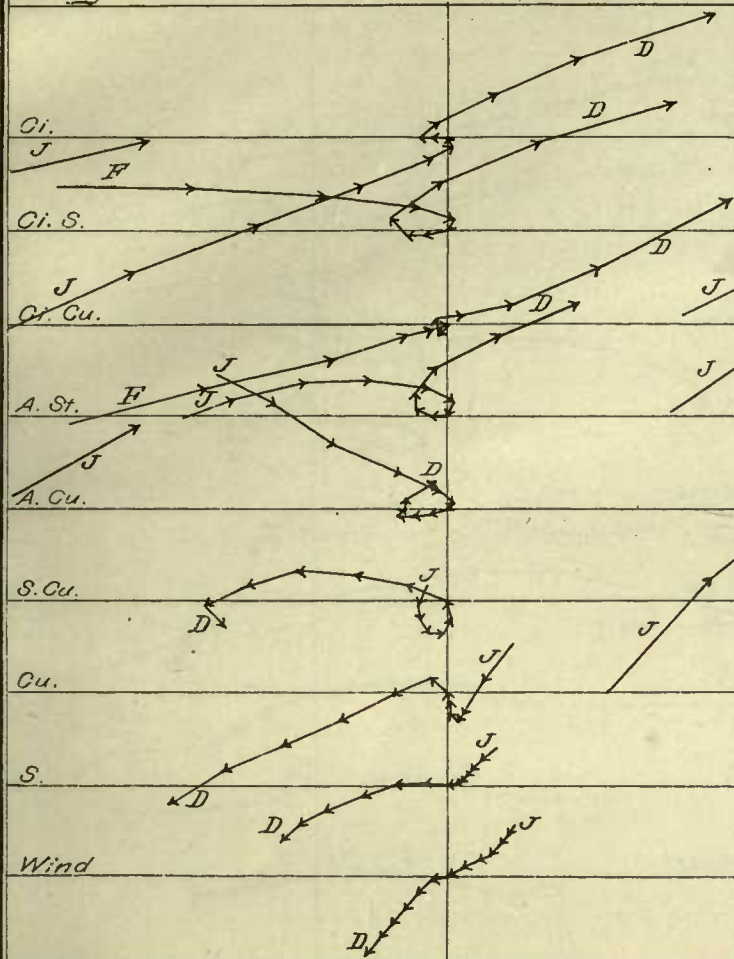 D
D
Ci.
J
F
Ci. S.
D
J
J
Ci. Cu.
D
J
J
F
J
A. St.
J
D
A. Cu.
J
S. Cu.
D
J
J
Cu.
J
S.
D
D
J
Wind
D